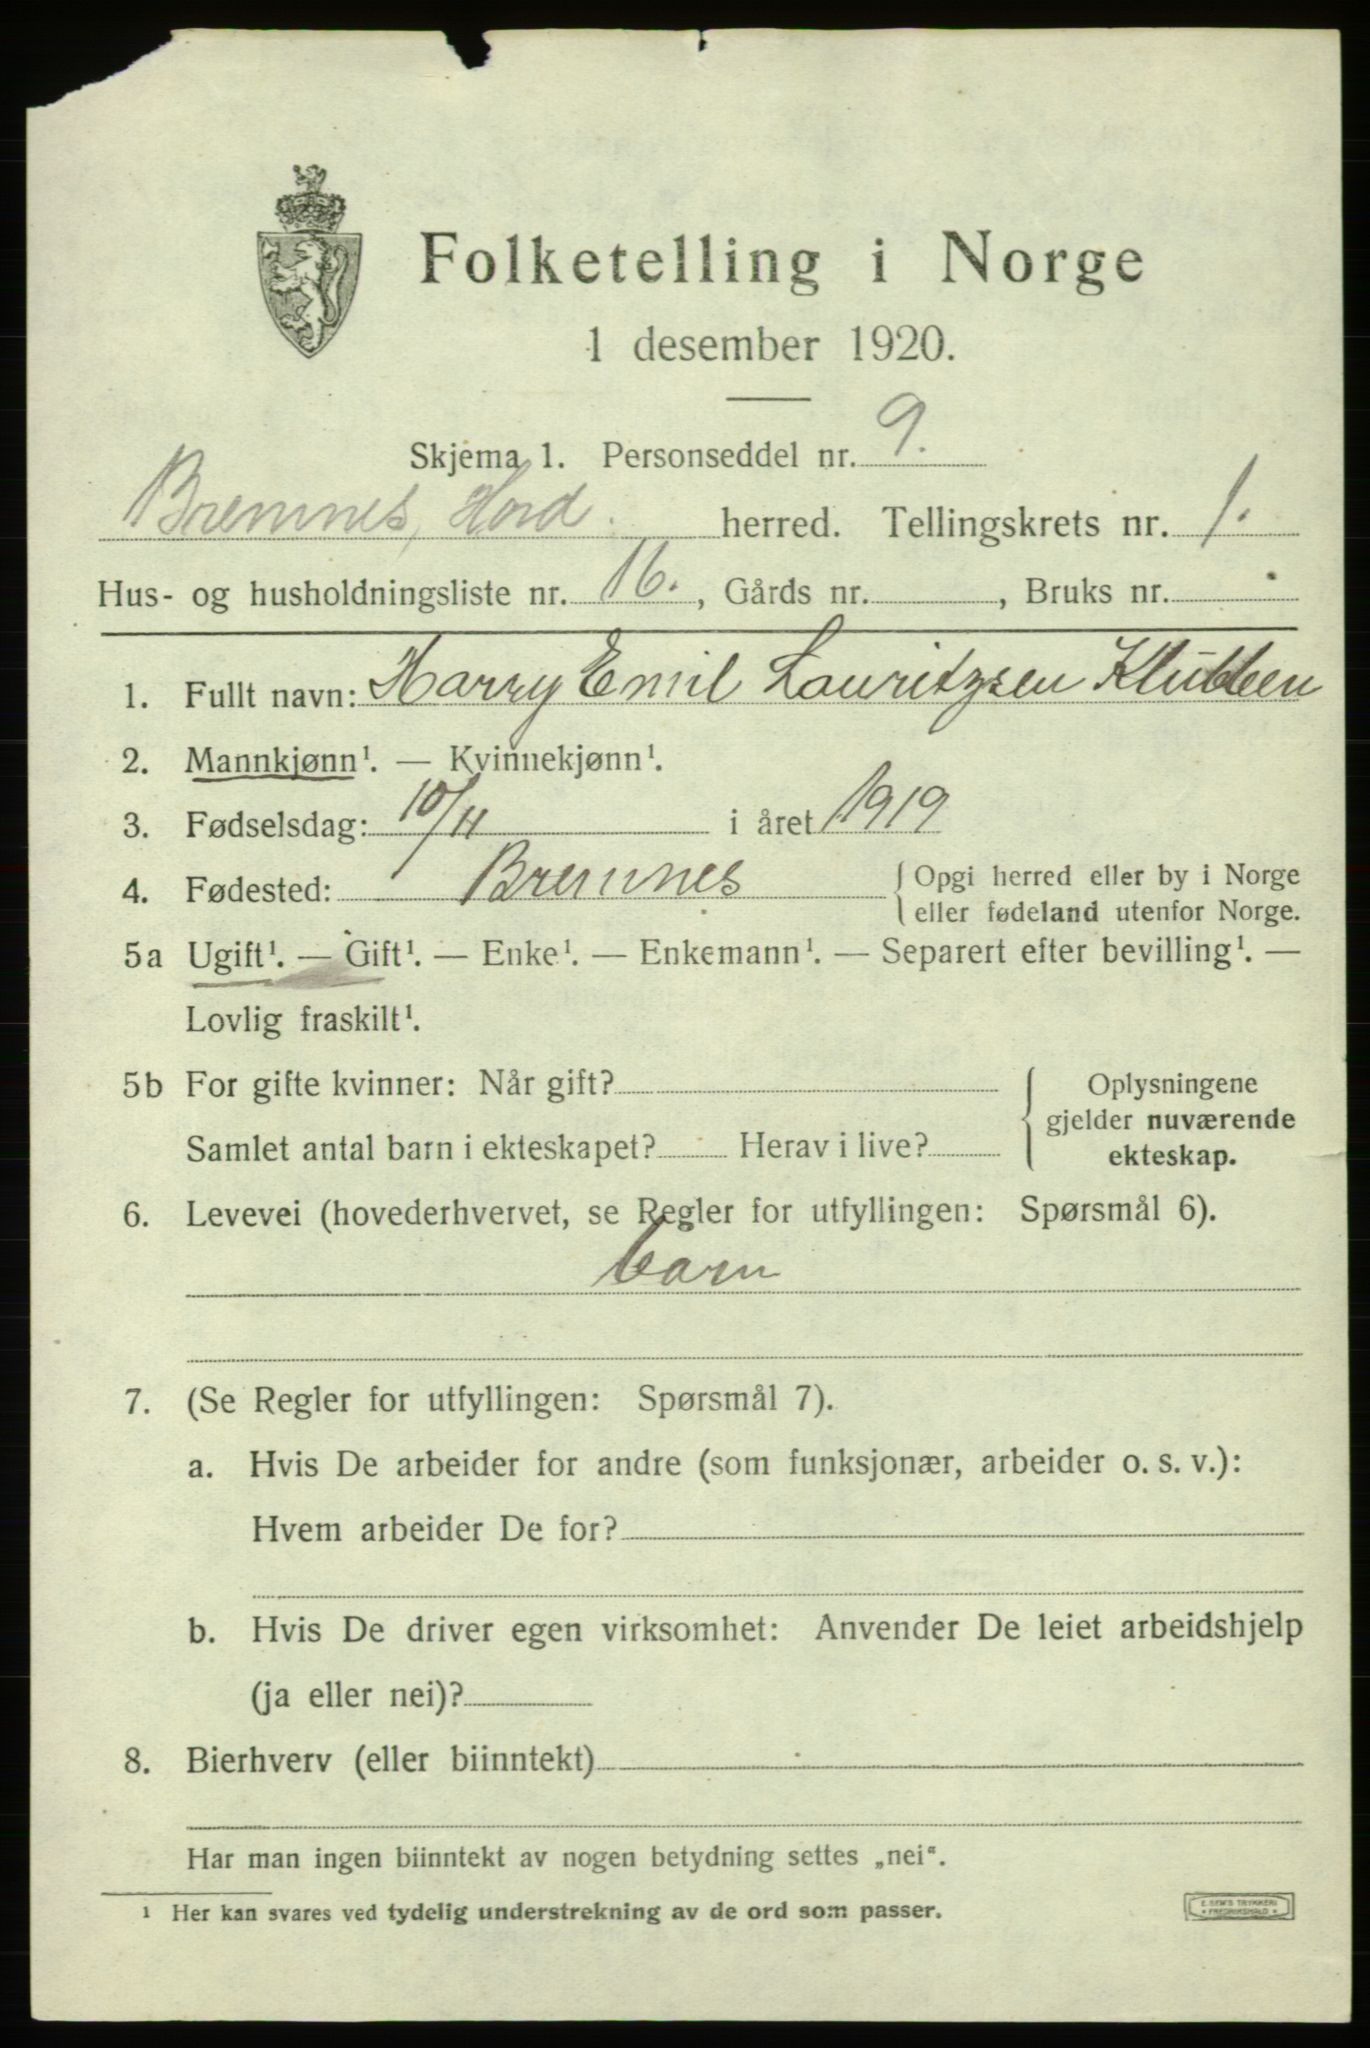 Folketelling i Norge
1 desember 1920.
Skjema 1. Personseddel nr. 9.
Bremnes, Hord. herred. Tellingskrets nr. 1.
Hus- og husholdningsliste nr. 16., Gårds nr. , Bruks nr.
1. Fullt navn: Harry Emil Lauritzsen Klubben
2. Mannkjønn¹. — Kvinnekjønn¹.
3. Fødselsdag: 10/11 i året 1919
4. Fødested: Bremnes { Opgi herred eller by i Norge
eller fødeland utenfor Norge.
5a Ugift¹. — Gift¹. — Enke¹. — Enkemann¹. — Separert efter bevilling¹. —
Lovlig fraskilt¹.
5b For gifte kvinner: Når gift? { Oplysningene
gjelder nuværende
Samlet antal barn i ekteskapet? Herav i live? ekteskap.
6. Levevei (hovederhvervet, se Regler for utfyllingen: Spørsmål 6).
barn
7. (Se Regler for utfyllingen: Spørsmål 7).
a. Hvis De arbeider for andre (som funksjonær, arbeider o. s. v.):
Hvem arbeider De for?
b. Hvis De driver egen virksomhet: Anvender De leiet arbeidshjelp
(ja eller nei)?
8. Bierhverv (eller biinntekt)
Har man ingen biinntekt av nogen betydning settes „nei“.
¹ Her kan svares ved tydelig understrekning av de ord som passer.
E. SEM'S TRYKKERI
FREDRIKSHALD